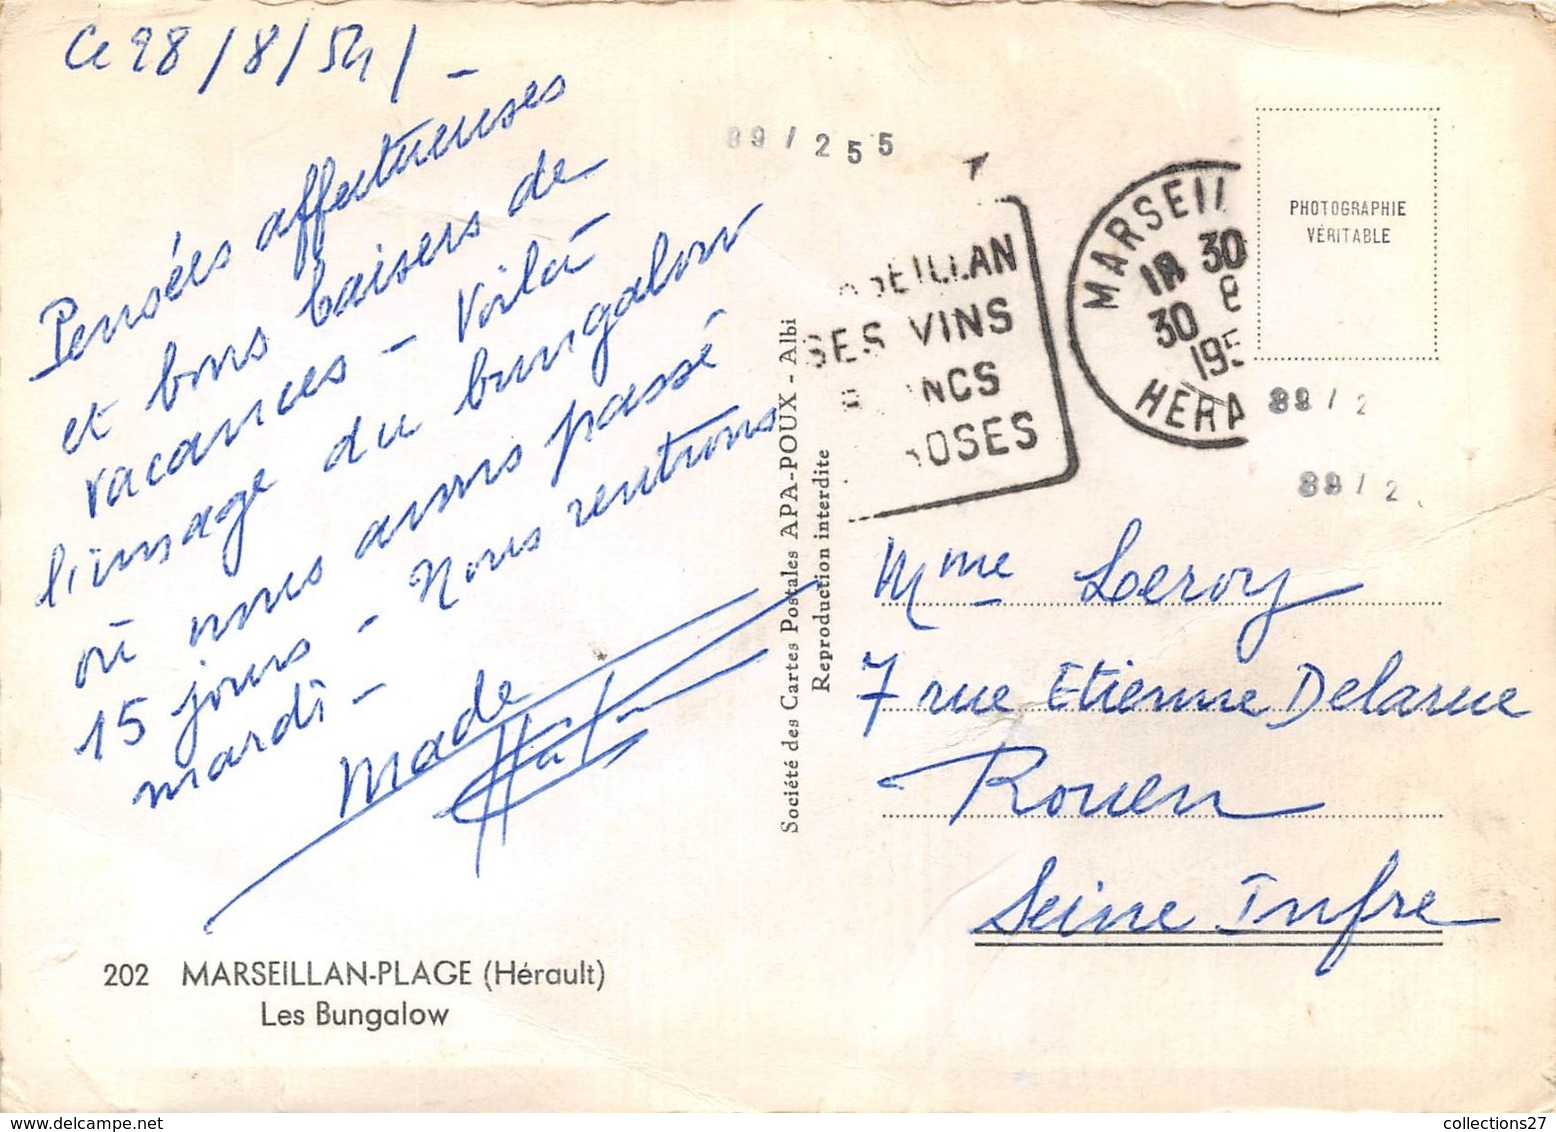 Ce 28/8/54/ -
Pensées affectueuses
et bons baisers de
vacances - Voilà
l'image du bungalow
où nous avons passé
15 jours - Nous rentrons
mardi -
Made
202 MARSEILLAN-PLAGE (Hérault)
Les Bungalow
Société des Cartes Postales APA-POUX - Albi
Reproduction interdite
89 / 255
SEILLAN
SES VINS
NCS
OSES
MARSEIL
18 30
30 8
195
HERA
PHOTOGRAPHIE
VÉRITABLE
89 / 2
89 / 2
Mme Leroy
7 rue Etienne Delarue
Rouen
Seine Infre
collections27